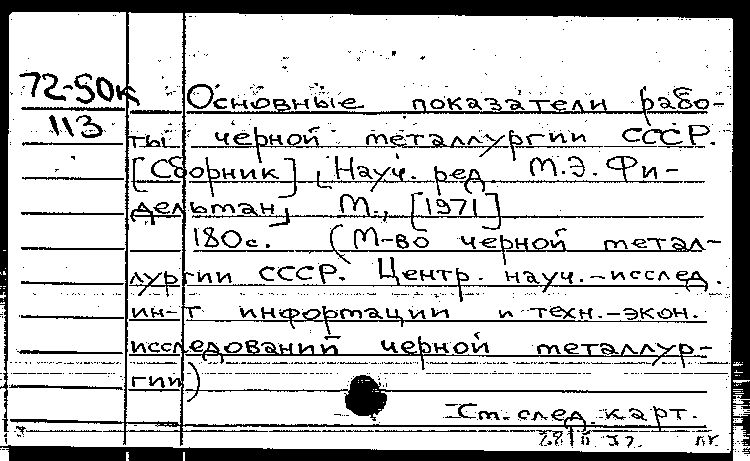 72-50к Основные показатели рабо-
113 ты черной металлургии СССР.
[Сборник] [Науч. ред. М.Э. Фи-
дельман] М., [1971]
180с. (М-во черной метал-
лургии СССР. Центр. науч.-исслед.
ин-т информации и техн.-экон.
исследований черной металлур-
гии)
См. след. карт.